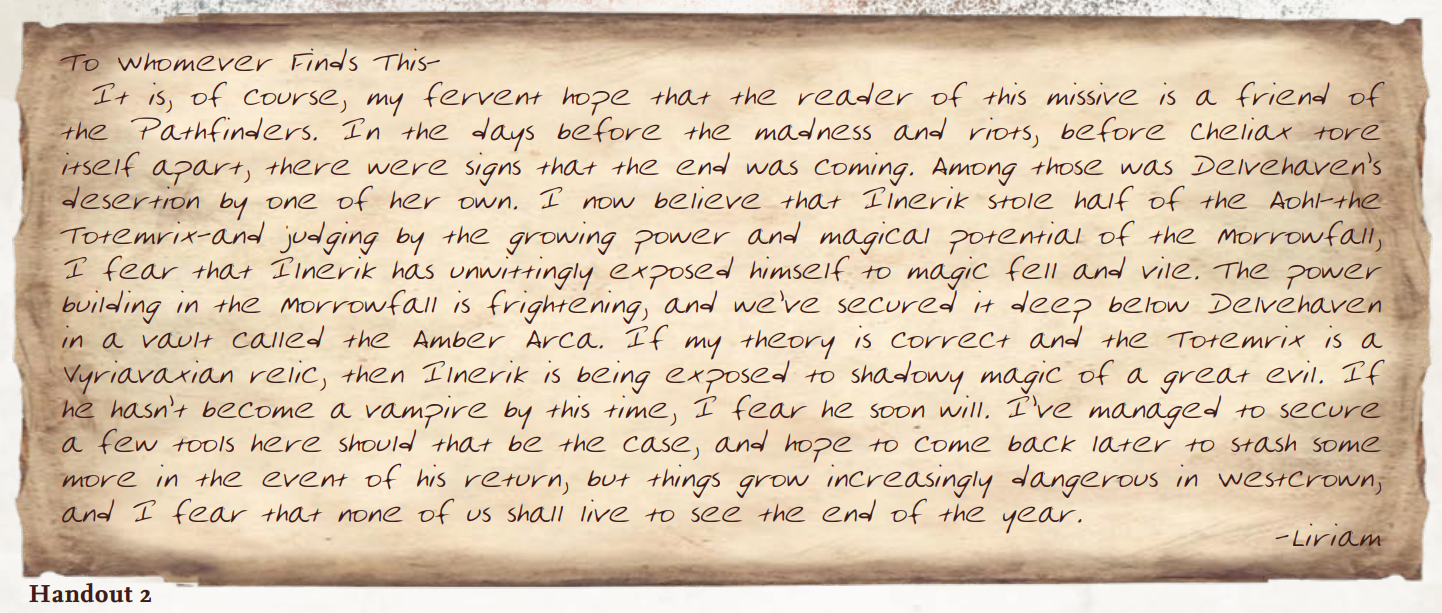 To Whomever Finds This-
It is, of course, my fervent hope that the reader of this missive is a friend of
the Pathfinders. In the days before the madness and riots, before Cheliax tore
itself apart, there were signs that the end was coming. Among those was Delvehaven's
desertion by one of her own. I now believe that Ilnerik stole half of the Aohl-the
Totemrix-and judging by the growing power and magical potential of the Morrowfall,
I fear that Ilnerik has unwittingly exposed himself to magic fell and vile. The power
building in the Morrowfall is frightening, and we've secured it deep below Delvehaven
in a vault called the Amber Arca. If my theory is correct and the Totemrix is a
Vyriavaxian relic, then Ilnerik is being exposed to shadowy magic of a great evil. If
he hasn't become a vampire by this time, I fear he soon will. I've managed to secure
a few tools here should that be the case, and hope to come back later to stash some
more in the event of his return, but things grow increasingly dangerous in Westcrown,
and I fear that none of us shall live to see the end of the year.
-Liriam
Handout 2